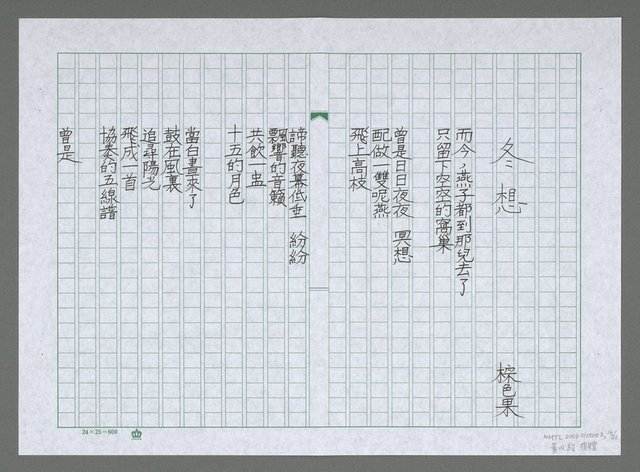 冬想
棕色果
而今，燕子都到那兒去了
只留下空空的窩巢
曾是日日夜夜 冥想
配做一雙呢燕
飛上高枝
諦聽夜幕低垂 紛紛
飄響的音籟
共飲一盅
十五的月色
當白晝來了
鼓在風裏
追尋陽光
飛成一首
協奏的五線譜
曾是
24×25=600